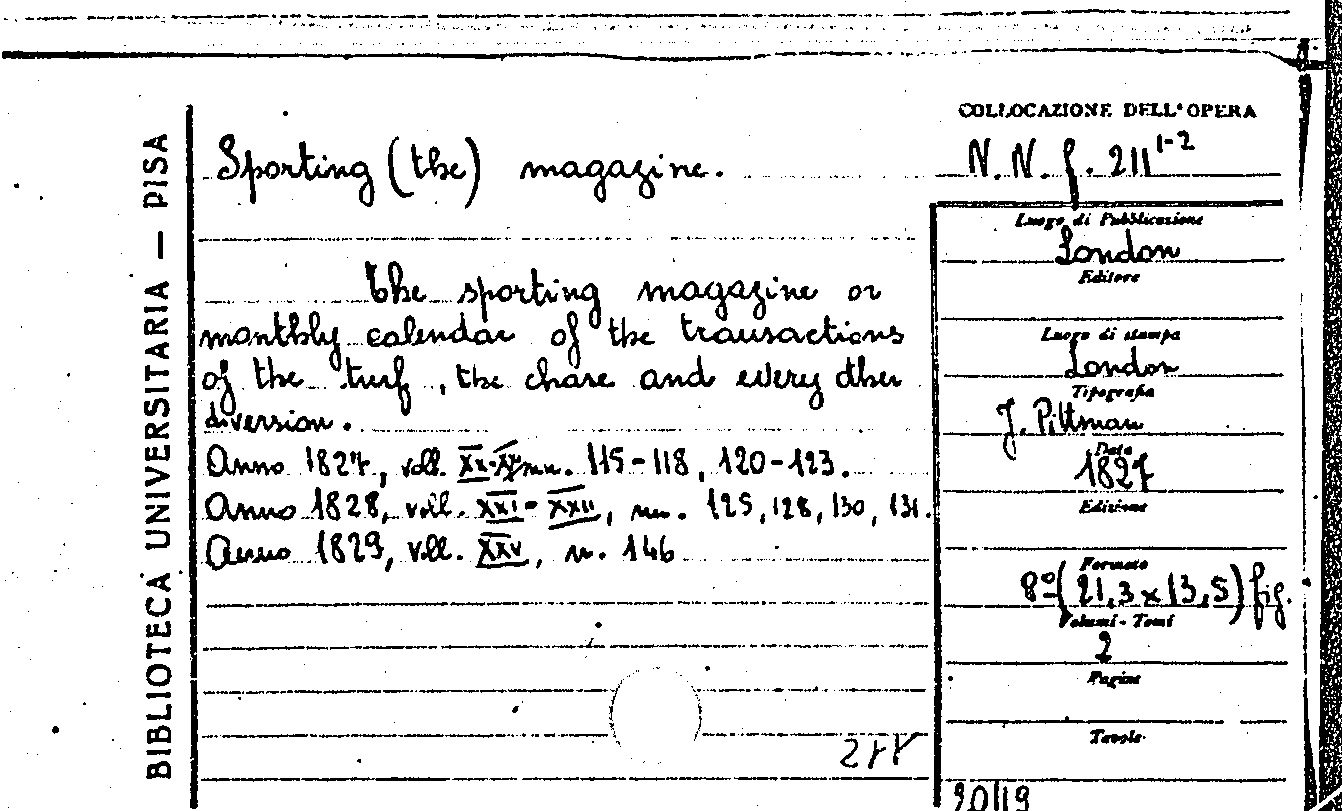 BIBLIOTECA UNIVERSITARIA — PISA
Sporting (the) magazine.
The sporting magazine or
monthly calendar of the transactions
of the turf, the chase and every other
diversion.
Anno 1827, voll. XX-XXI nn. 115-118, 120-123.
Anno 1828, voll. XXI - XXII, nn. 125, 128, 130, 131.
Anno 1829, voll. XXV, n. 146
COLLOCAZIONE DELL'OPERA
N. N. f. 211 1-2
Luogo di Pubblicazione
London
Editore
Luogo di stampa
London
Tipografia
J. Pittman
Data
1827
Edizione
Formato
8º (21,3 x 13,5) fig.
Volumi - Tomi
2
Pagine
Tavole
20/19